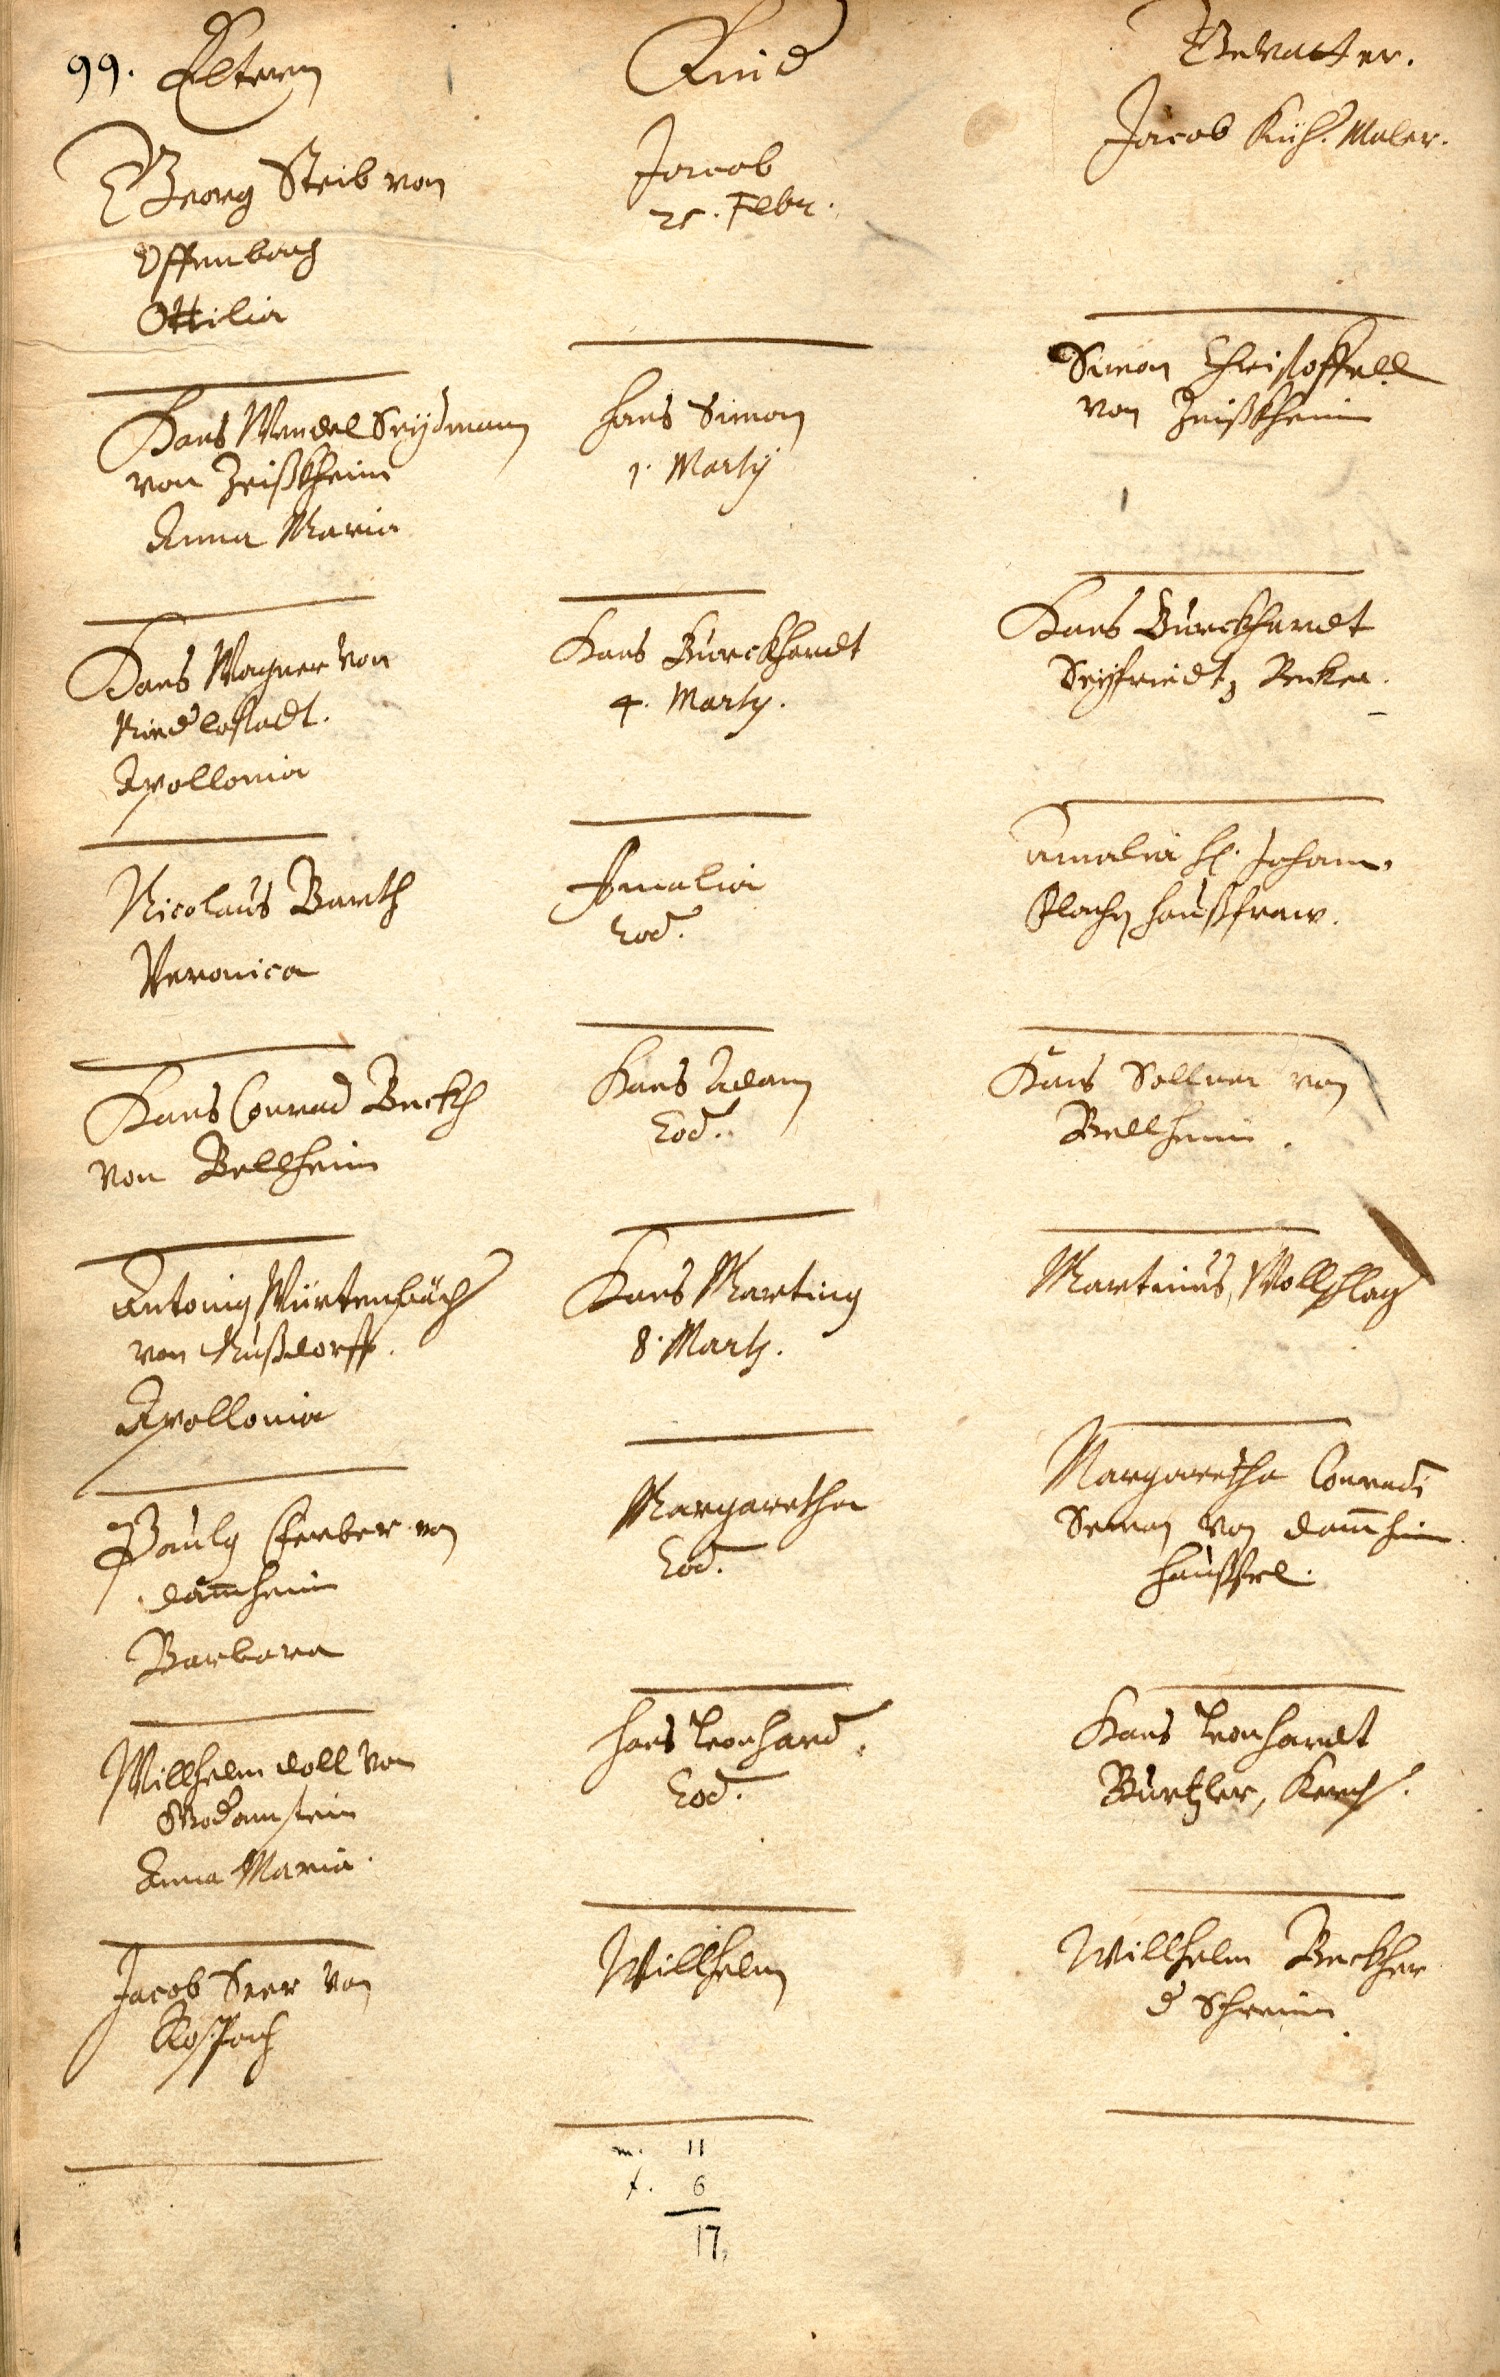 99. Eltern
Kind
Gevatter.
Georg Steib von
Offenbach
Ottilia
Jacob
25. Febr.
Jacob Küh. Maler.
Hans Wendel Seydmann
von Zeißkheim
Anna Maria
Hans Simon
1. Martij
Simon Christoffell
von Zeißkheim
Hans Wagner von
Apollonia
Hans Burckhardt
4. Martij.
Hans Burckhardt
Seyfriedt, Becker.
Nicolaus Barth
Veronica
Amalia
Eod.
Amalia H. Johann
haußfraw.
Hans Conrad Beckh
von Bellheim
Hans Adam
Eod.
Hans Sollner von
Bellheim.
Antonij Würtenbäch
von Nußdorff.
Apollonia
Hans Martinq
8. Martij.
Martinus Wollschlag
Paulq Ferber von
dam̄heim
Barbara
Margaretha
Eod.
Margaretha Conradi
von dam̄heim
haußfrl.
Willhelm doll von
Godamstein
Anna Maria.
Hans Leonhard.
Eod.
Hans Leonhardt
Burtzler, Kerch.
Jacob Seer von
Rospach
Willhelm
Willhelm Beckher
d Schreiner
m. 11
f. 6
17.